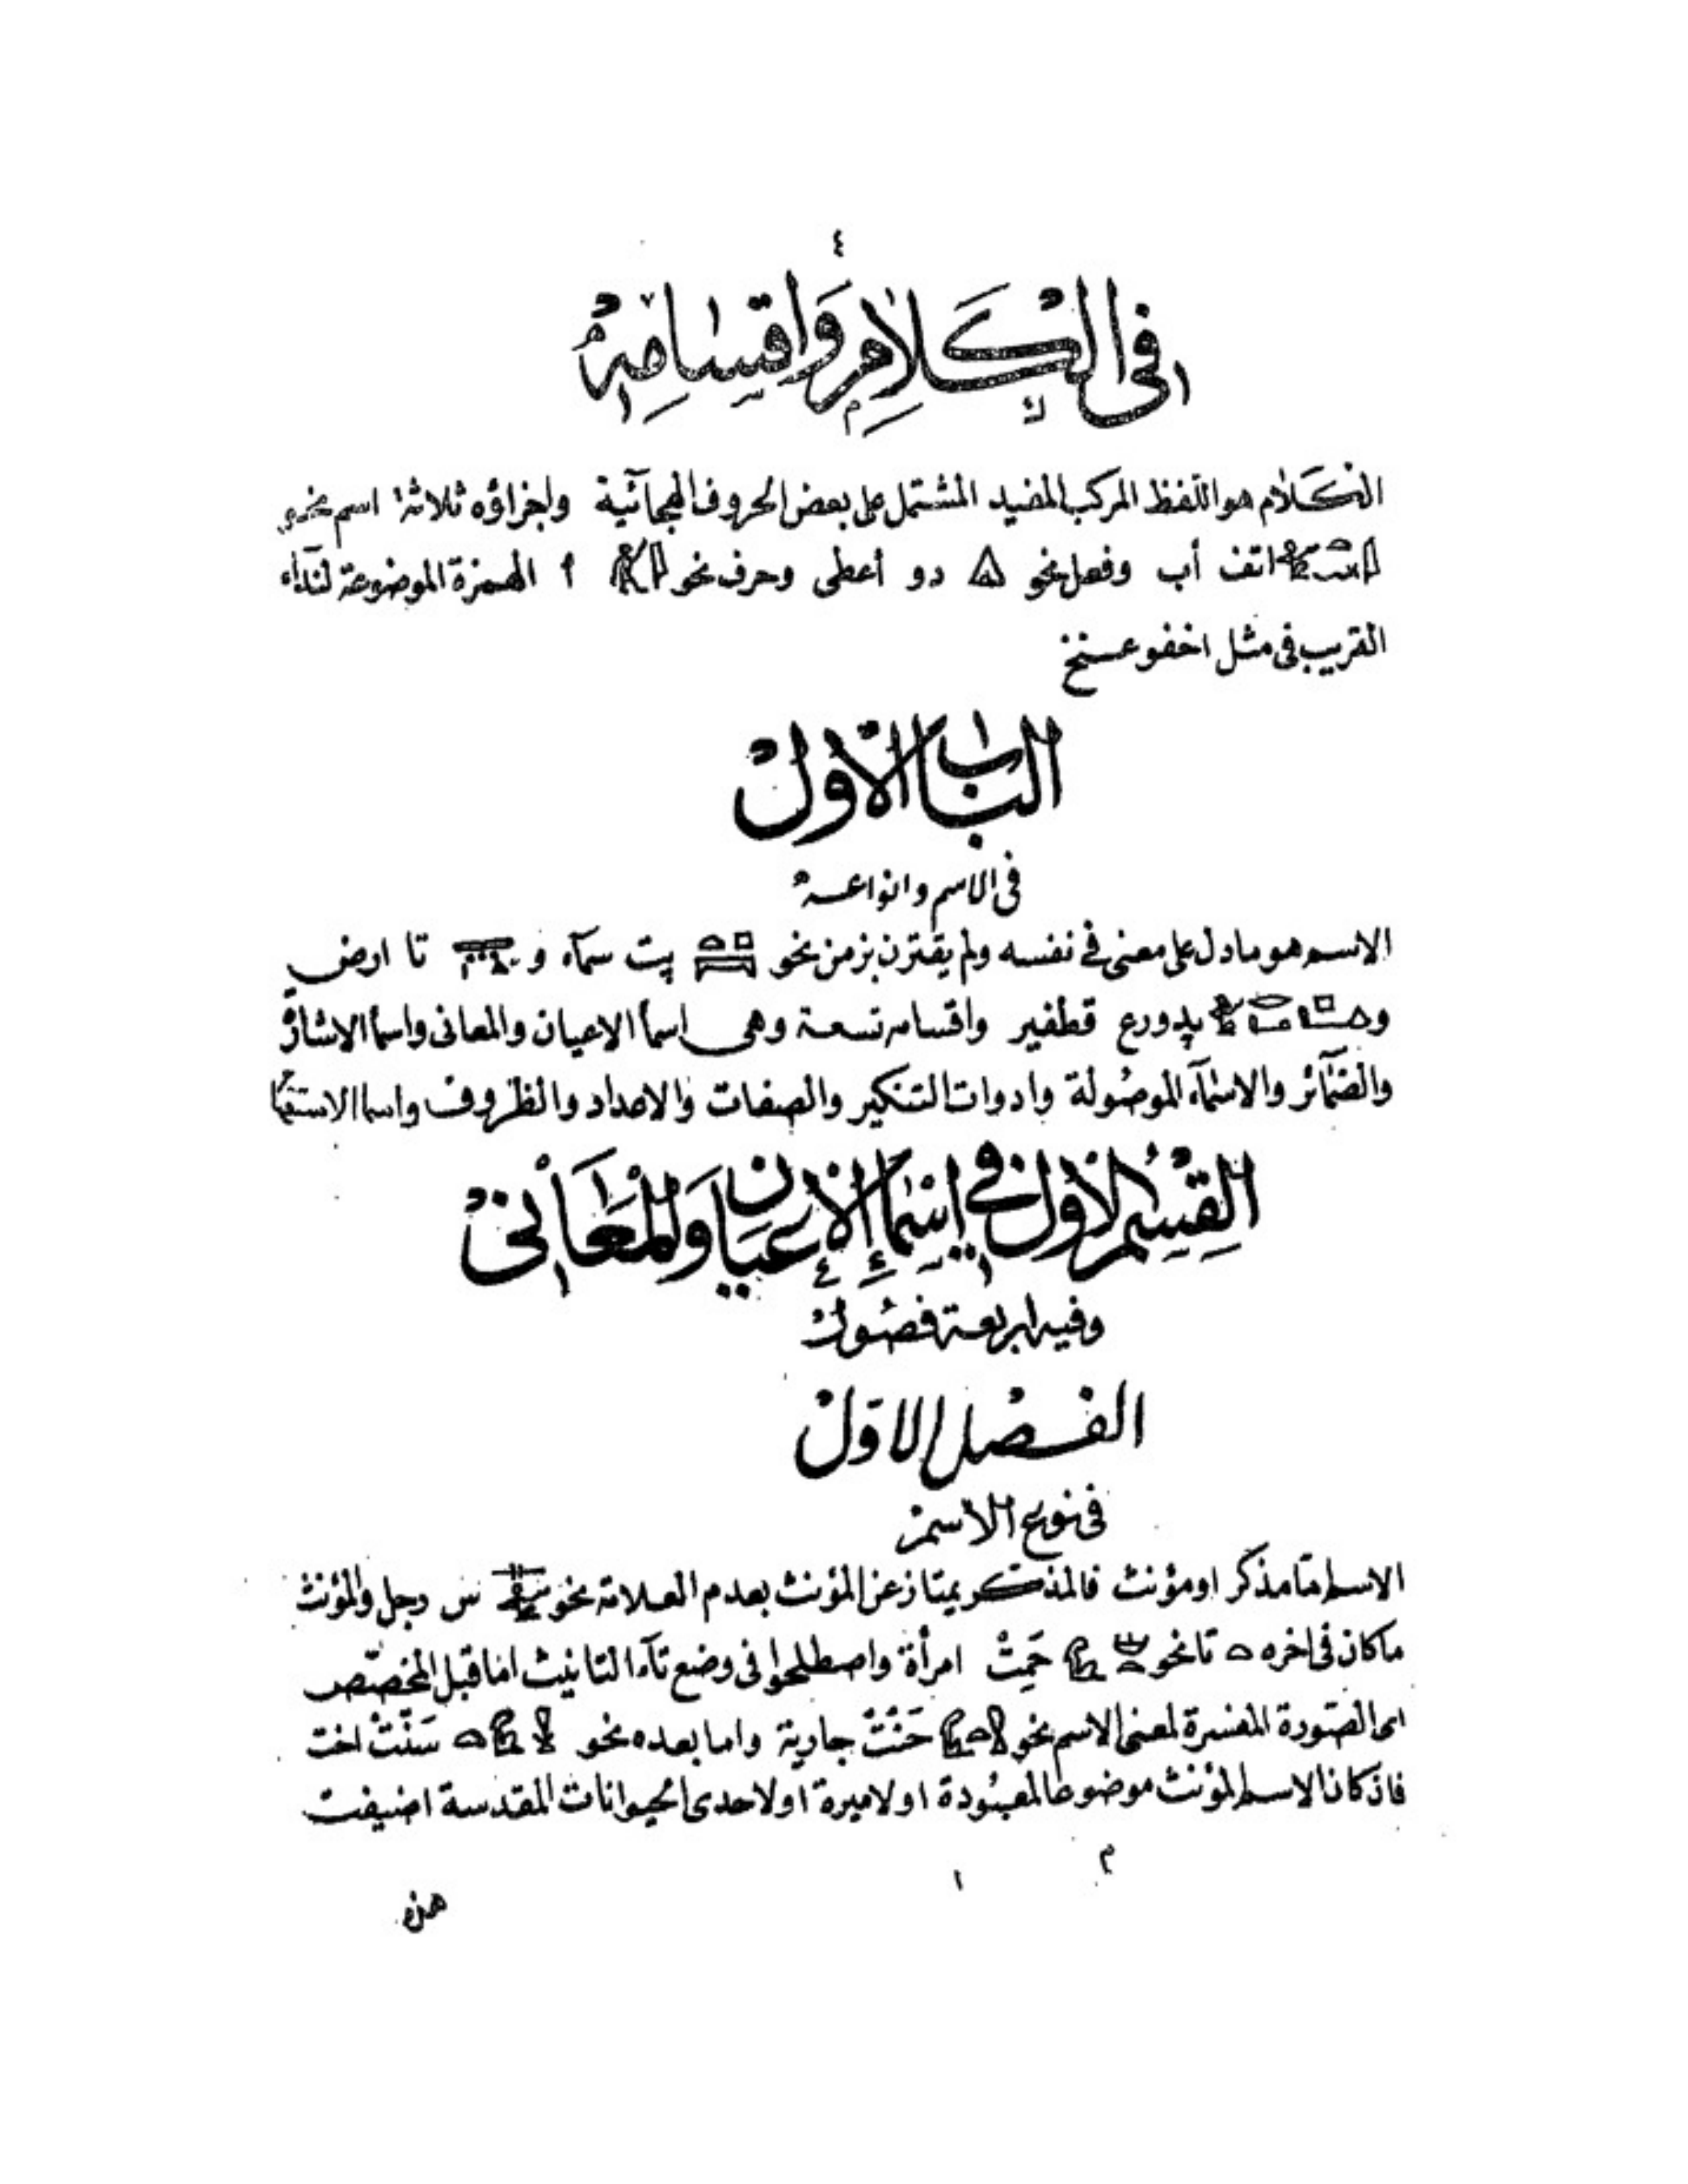 ٤
في الكلام واقسامه
الكلام هو اللفظ المركب المفيد المشتمل على بعض الحروف الهجائية واجزاؤه ثلاثة اسم نحو
اتف أب وفعل نحو دو أعطى وحرف نحو أ الهمزة الموضوعة لنداء
القريب في مثل اخفو عسنخ
الباب الاول
في الاسم وانواعه
الاسم هو ما دل على معنى في نفسه ولم يقترن بزمن نحو پت سمآء و تا ارض
و پدورع قطفير واقسامه تسعة وهي اسمأ الاعيان والمعانى واسمأ الاشارة
والضمآئر والاسمآء الموصولة وادوات التنكير والصفات والاعداد والظروف واسما الاستفها
القسم الاول في اسماء الاعيان والمعانى
وفيه اربعة فصول
الفصل الاول
في نوع الاسم
الاسم اما مذكر او مؤنث فالمذكر يمتاز عن المؤنث بعدم العلامة نحو س رجل والمؤنث
ما كان في اخره تا نحو حَمِتْ امرأة واصطلحوا في وضع تآء التانيث اما قبل المخصّص
اى الصورة المفسرة لمعنى الاسم نحو حَنْتْ جارية واما بعده نحو سَنْتْ اخت
فان كان الاسم المؤنث موضوعا لمعبودة او لاميرة او لاحدى الحيوانات المقدسة اضيفت
م ١
هذه